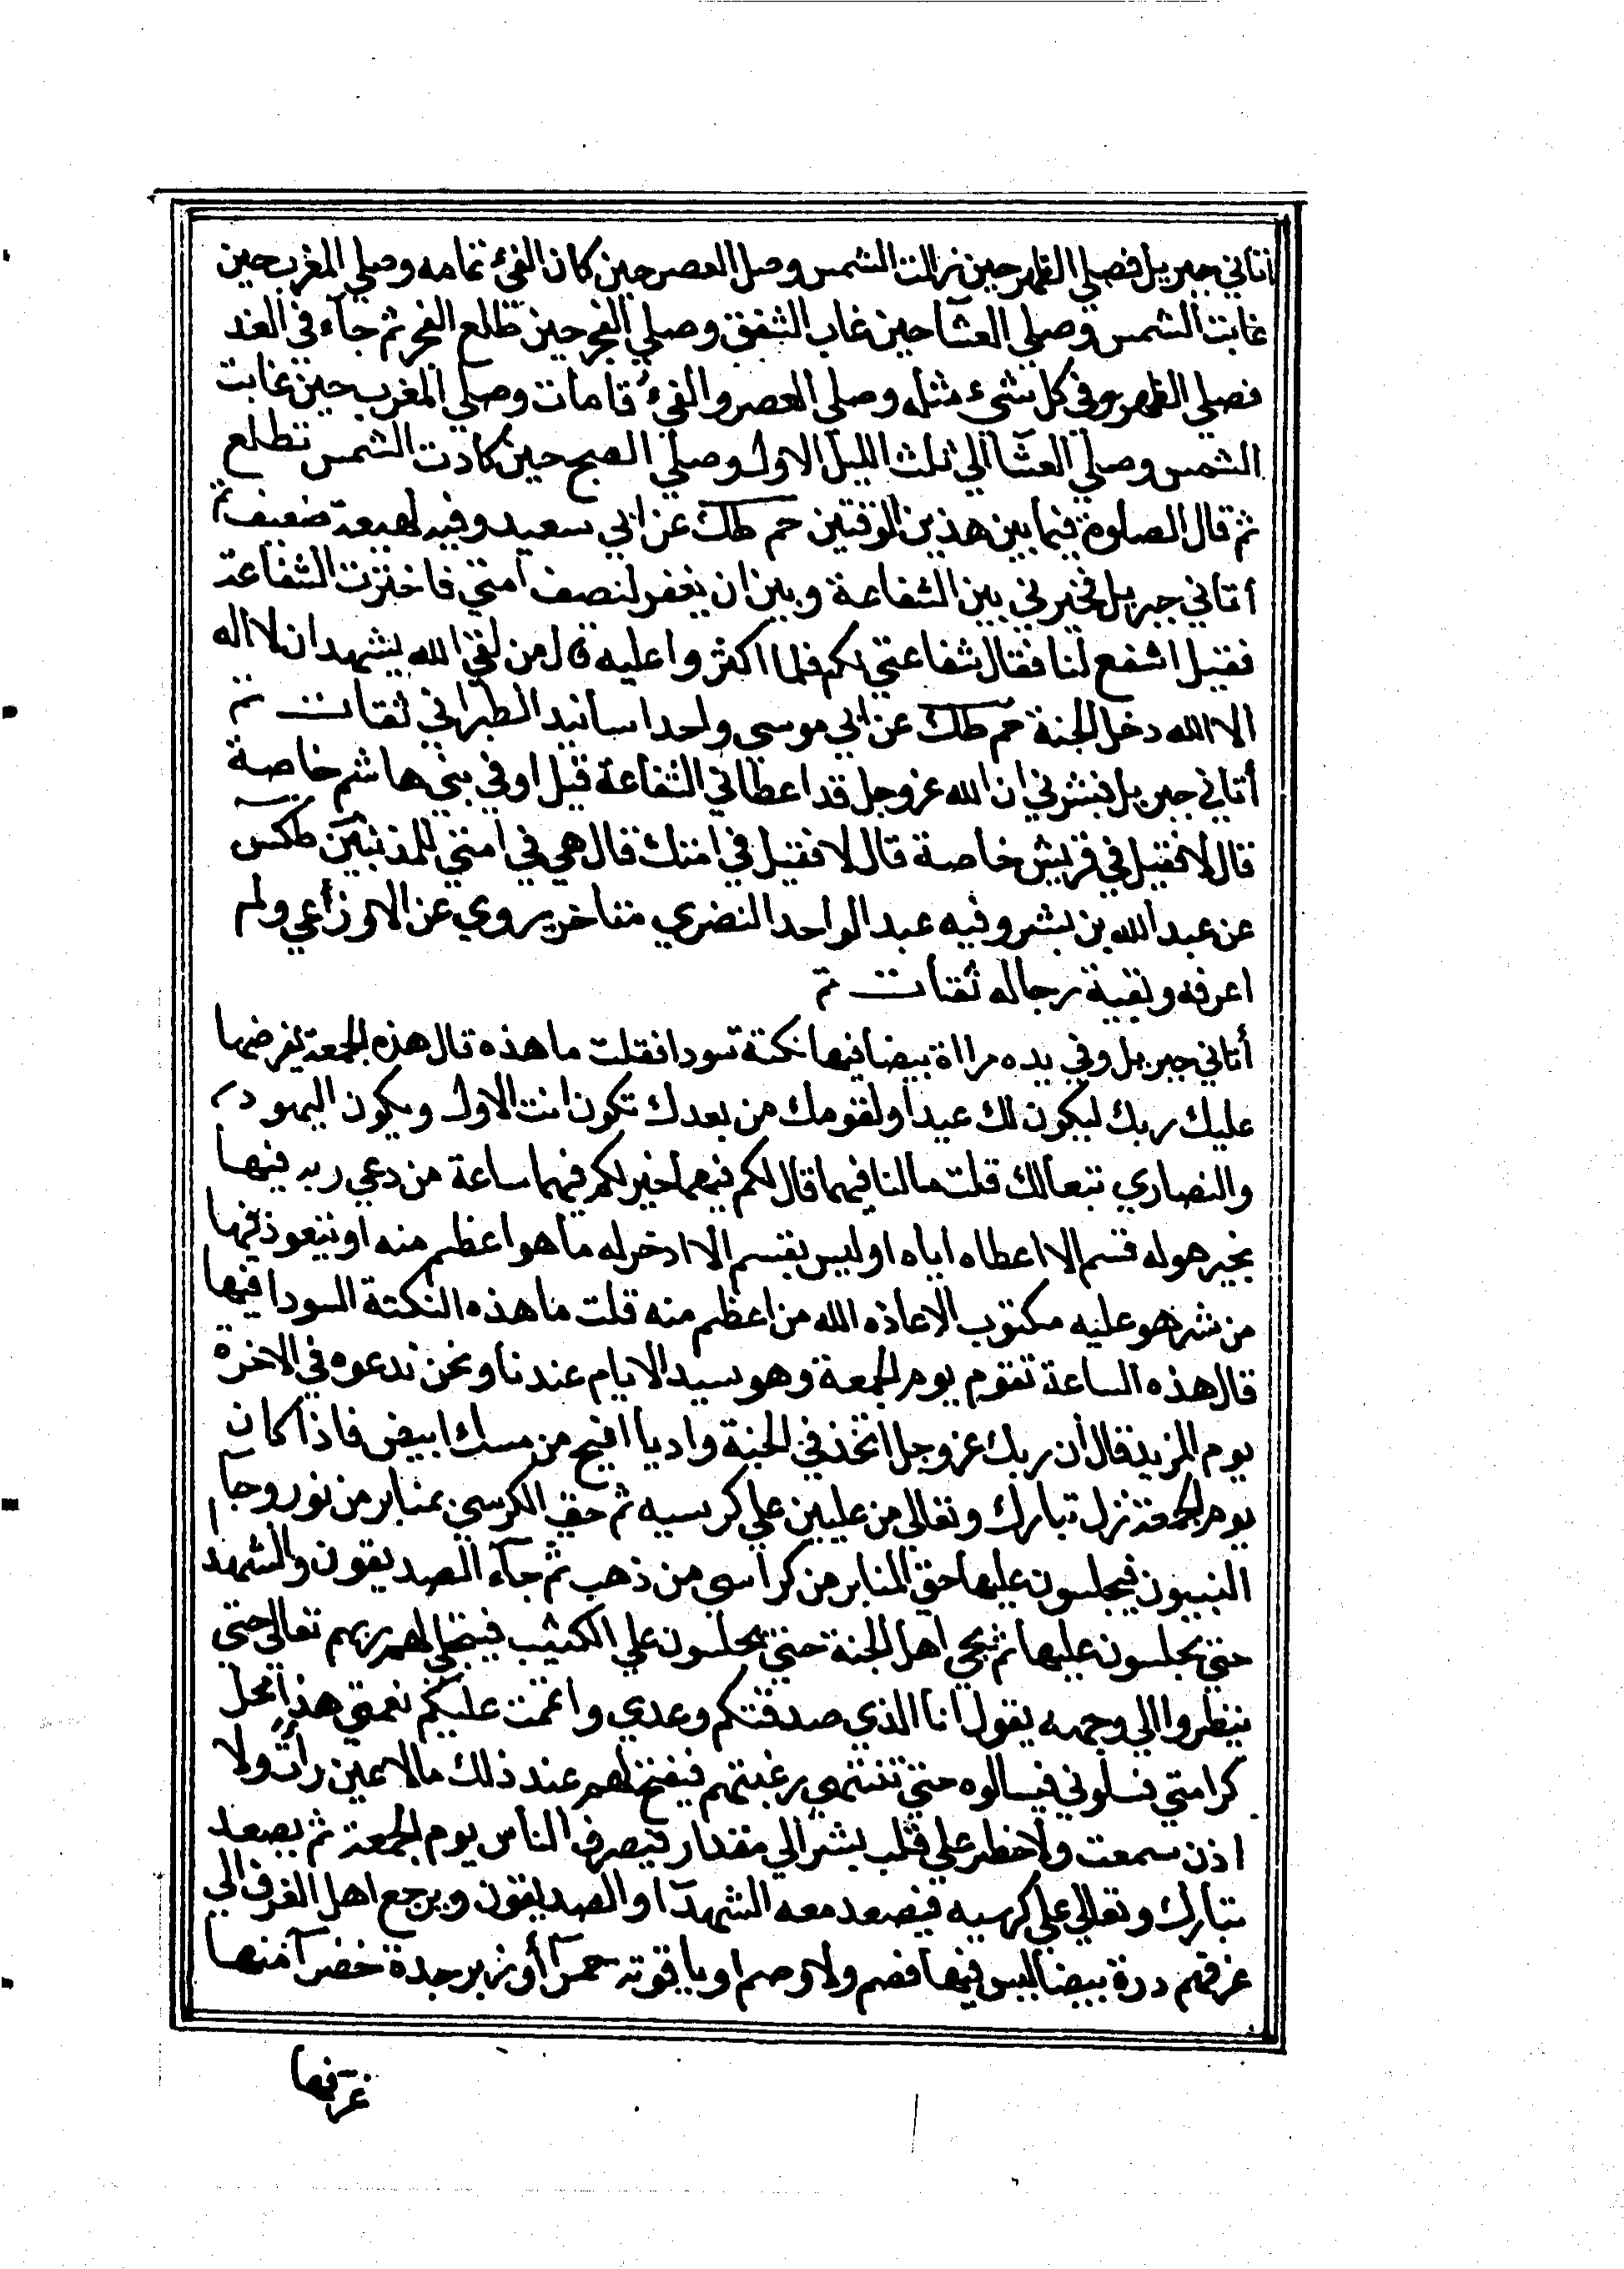 أتاني جبريل فصلي الظهر حين زالت الشمس وصل العصر حين كان الفئ تمامه وصلي المغرب حين
غابت الشمس وصلي العشآ حين غاب الشفق وصلي الفجر حين طلع الفجر ثم جآء في الغد
فصلي الظهر وفي كل شيء مثله وصلي العصر والفيء قامات وصلي المغرب حين غابت
الشمس وصلي العشآ الي ثلث الليل الاول وصلي الصبح حين كادت الشمس تطلع
ثم قال الصلوة فيما بين هذين الوقتين حم طك عن ابي سعيد وفيه لهيعة ضعيف ثم
أتاني جبريل فخيرني بين الشفاعة وبين ان يغفر لنصف أمتي فاخترت الشفاعة
فقيل اشفع لنا فقال شفاعتي لكم فلما اكثروا عليه قال من لقي الله يشهد ان لا اله
الا الله دخل الجنة حم طك عن ابي موسى واحد اسانيد الطبراني ثقات ثم
أتاني جبريل فبشرني ان الله عز وجل قد اعطاني الشفاعة قيل اوفي بني هاشم خاصة
قال لا فقيل في قريش خاصة قال لا فقيل في امتك قال هي في أمتي للمذنبين طكس
عن عبد الله بن بشر وفيه عبد الواحد النضري متأخر يروي عن الاوزاعي ولم
اعرفه وبقية رجاله ثقات ثم
أتاني جبريل وفي يده مرااة بيضا فيها نكتة سودا فقلت ما هذه قال هذه الجمعة يفرضها
عليك ربك ليكون لك عيدا ولقومك من بعدك تكون انت الاول ويكون اليهود
والنصاري تبعا لك قلت ما لنا فيها قال لكم فيها خير لكم فيها ساعة من دعي ربه فيها
بخير هو له قسم الا اعطاه اياه او ليس بقسم الا ادخر له ما هو اعظم منه او تعوذ فيها
من شر هو عليه مكتوب الا عاذه الله من اعظم منه قلت ما هذه النكتة السودا فيها
قال هذه الساعة تقوم يوم الجمعة وهو سيد الايام عندنا ونحن ندعوه في الاخرة
يوم المزيد قال ان ربك عز وجل اتخذ في الجنة واديا افيح من مسك ابيض فاذا كان
يوم الجمعة نزل تبارك وتعالي من عليين علي كرسيه ثم حف الكرسي بمنابر من نور وجآ
النبيون فيجلسون عليها حف المنابر من كراسي من ذهب ثم جآء الصديقون والشهدا
حتي يجلسون عليها ثم يجي اهل الجنة حتي يجلسون علي الكثيب فيتجلي لهم ربهم تعالي حتي
ينظروا الي وجهه يقول انا الذي صدقتكم وعدي واتممت عليكم نعمتي هذا محل
كرامتي فسلوني فيسالوه حتي تنتهي رغبتهم فيفتح لهم عند ذلك مالا عين رأت ولا
اذن سمعت ولا خطر علي قلب بشر الي مقدار يصرف الناس يوم الجمعة ثم يصعد
تبارك وتعالي علي كرسيه فيصعد معه الشهدآ والصديقون ويرجع اهل الغرف الي
غرفهم درة بيضا ليس فيها فصم ولا وصم او ياقوتة حمرآ أو زبرجدة خضرآ منها
غرفها